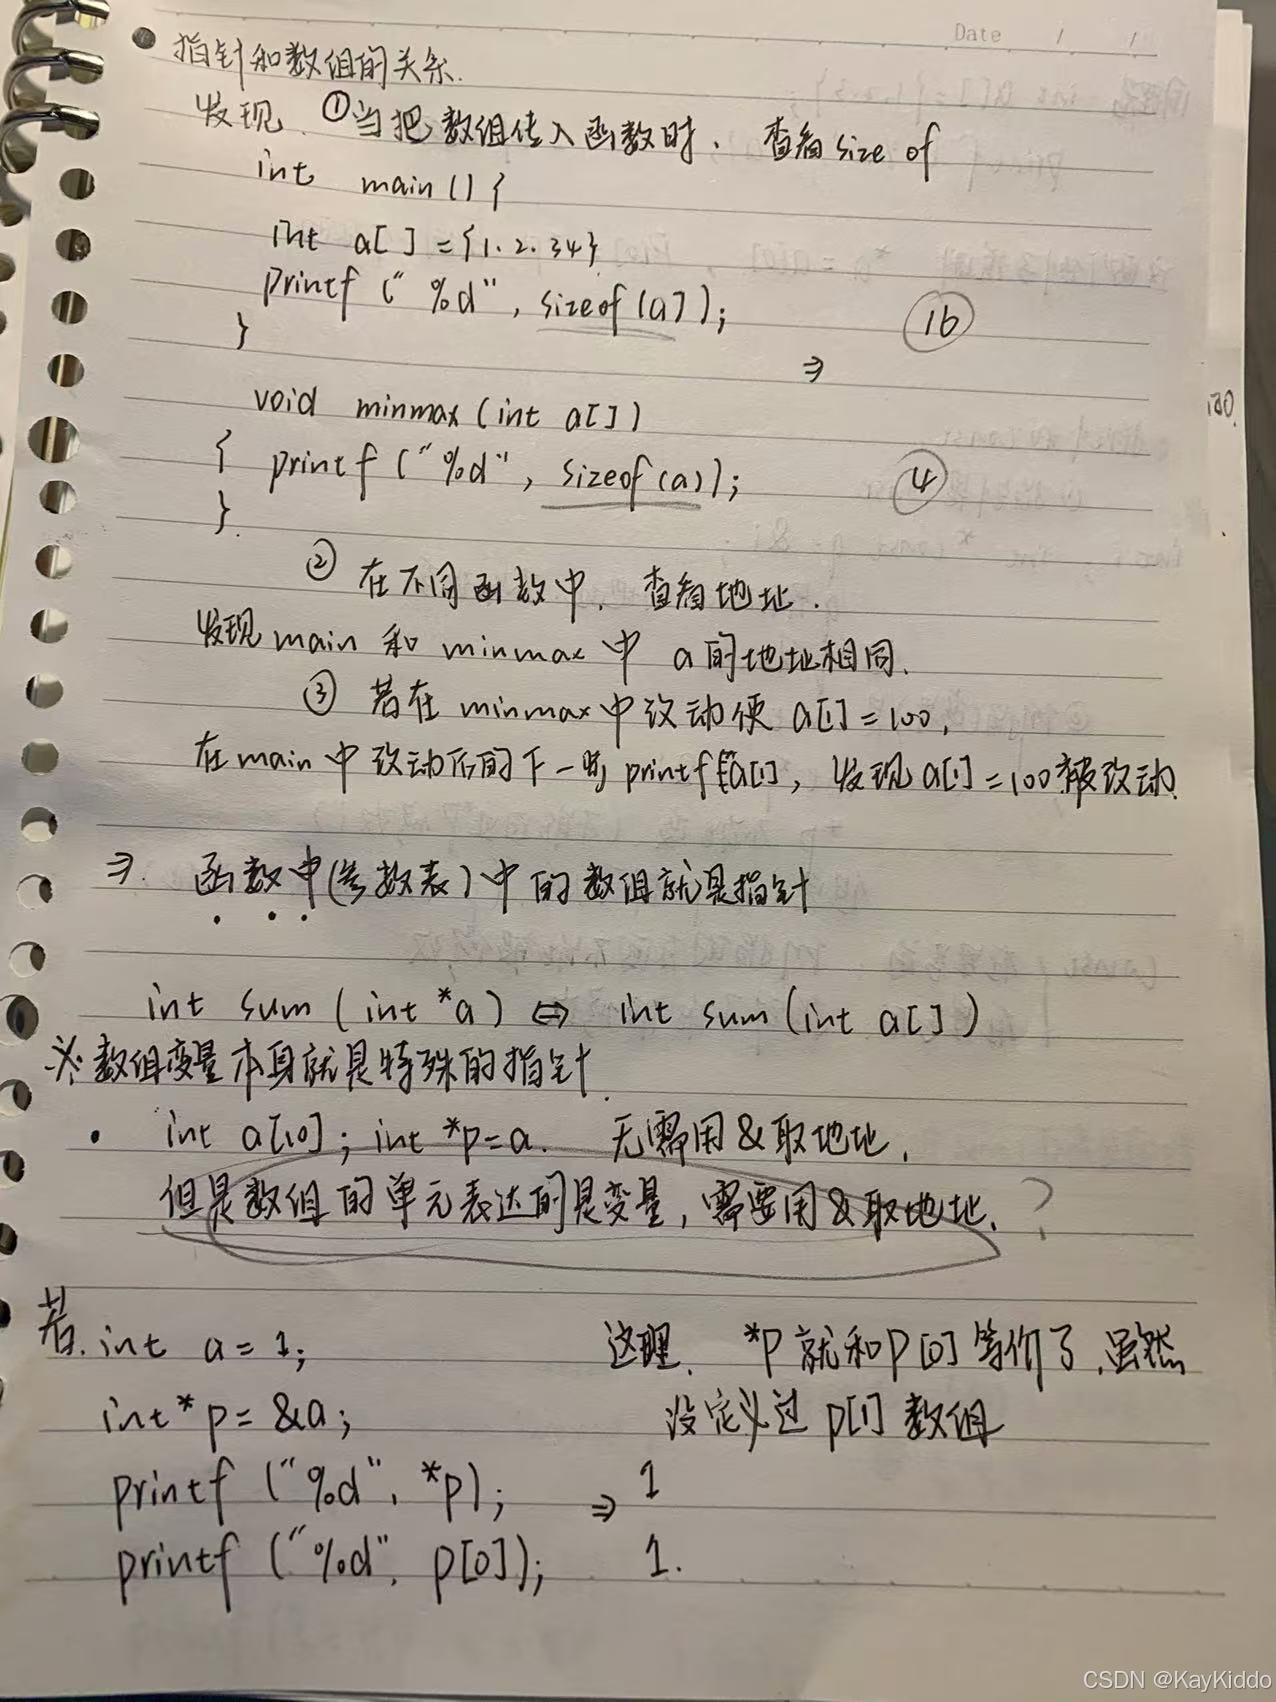 Date / /
指针和数组的关系.
发现 ①当把数组传入函数时、查看size of
int main(){
int a[ ]={1.2.34}
printf ("%d", sizeof(a));
16
}
⇒
void minmax(int a[])
{ printf ("%d", sizeof(a));
4
}
② 在不同函数中、查看地址.
发现main 和 minmax 中 a的地址相同.
③ 若在minmax中改动使a[1]=100,
在main中改动后的下一些printf a[1], 发现a[1]=100被改动.
⇒. 函数中(参数表)中的数组就是指针
int sum(int *a) ⇔ int sum(int a[])
※数组变量本身就是特殊的指针.
• int a[10]; int *p=a. 无需用&取地址.
但是数组的单元表达的是变量, 需要用&取地址. ?
若. int a=1;
这理. *p就和p[0]等价了.虽然
int* p=&a;
没定义过p[1]数组
printf ("%d", *p); ⇒ 1
printf ("%d", p[0]); 1.
CSDN @KayKiddo